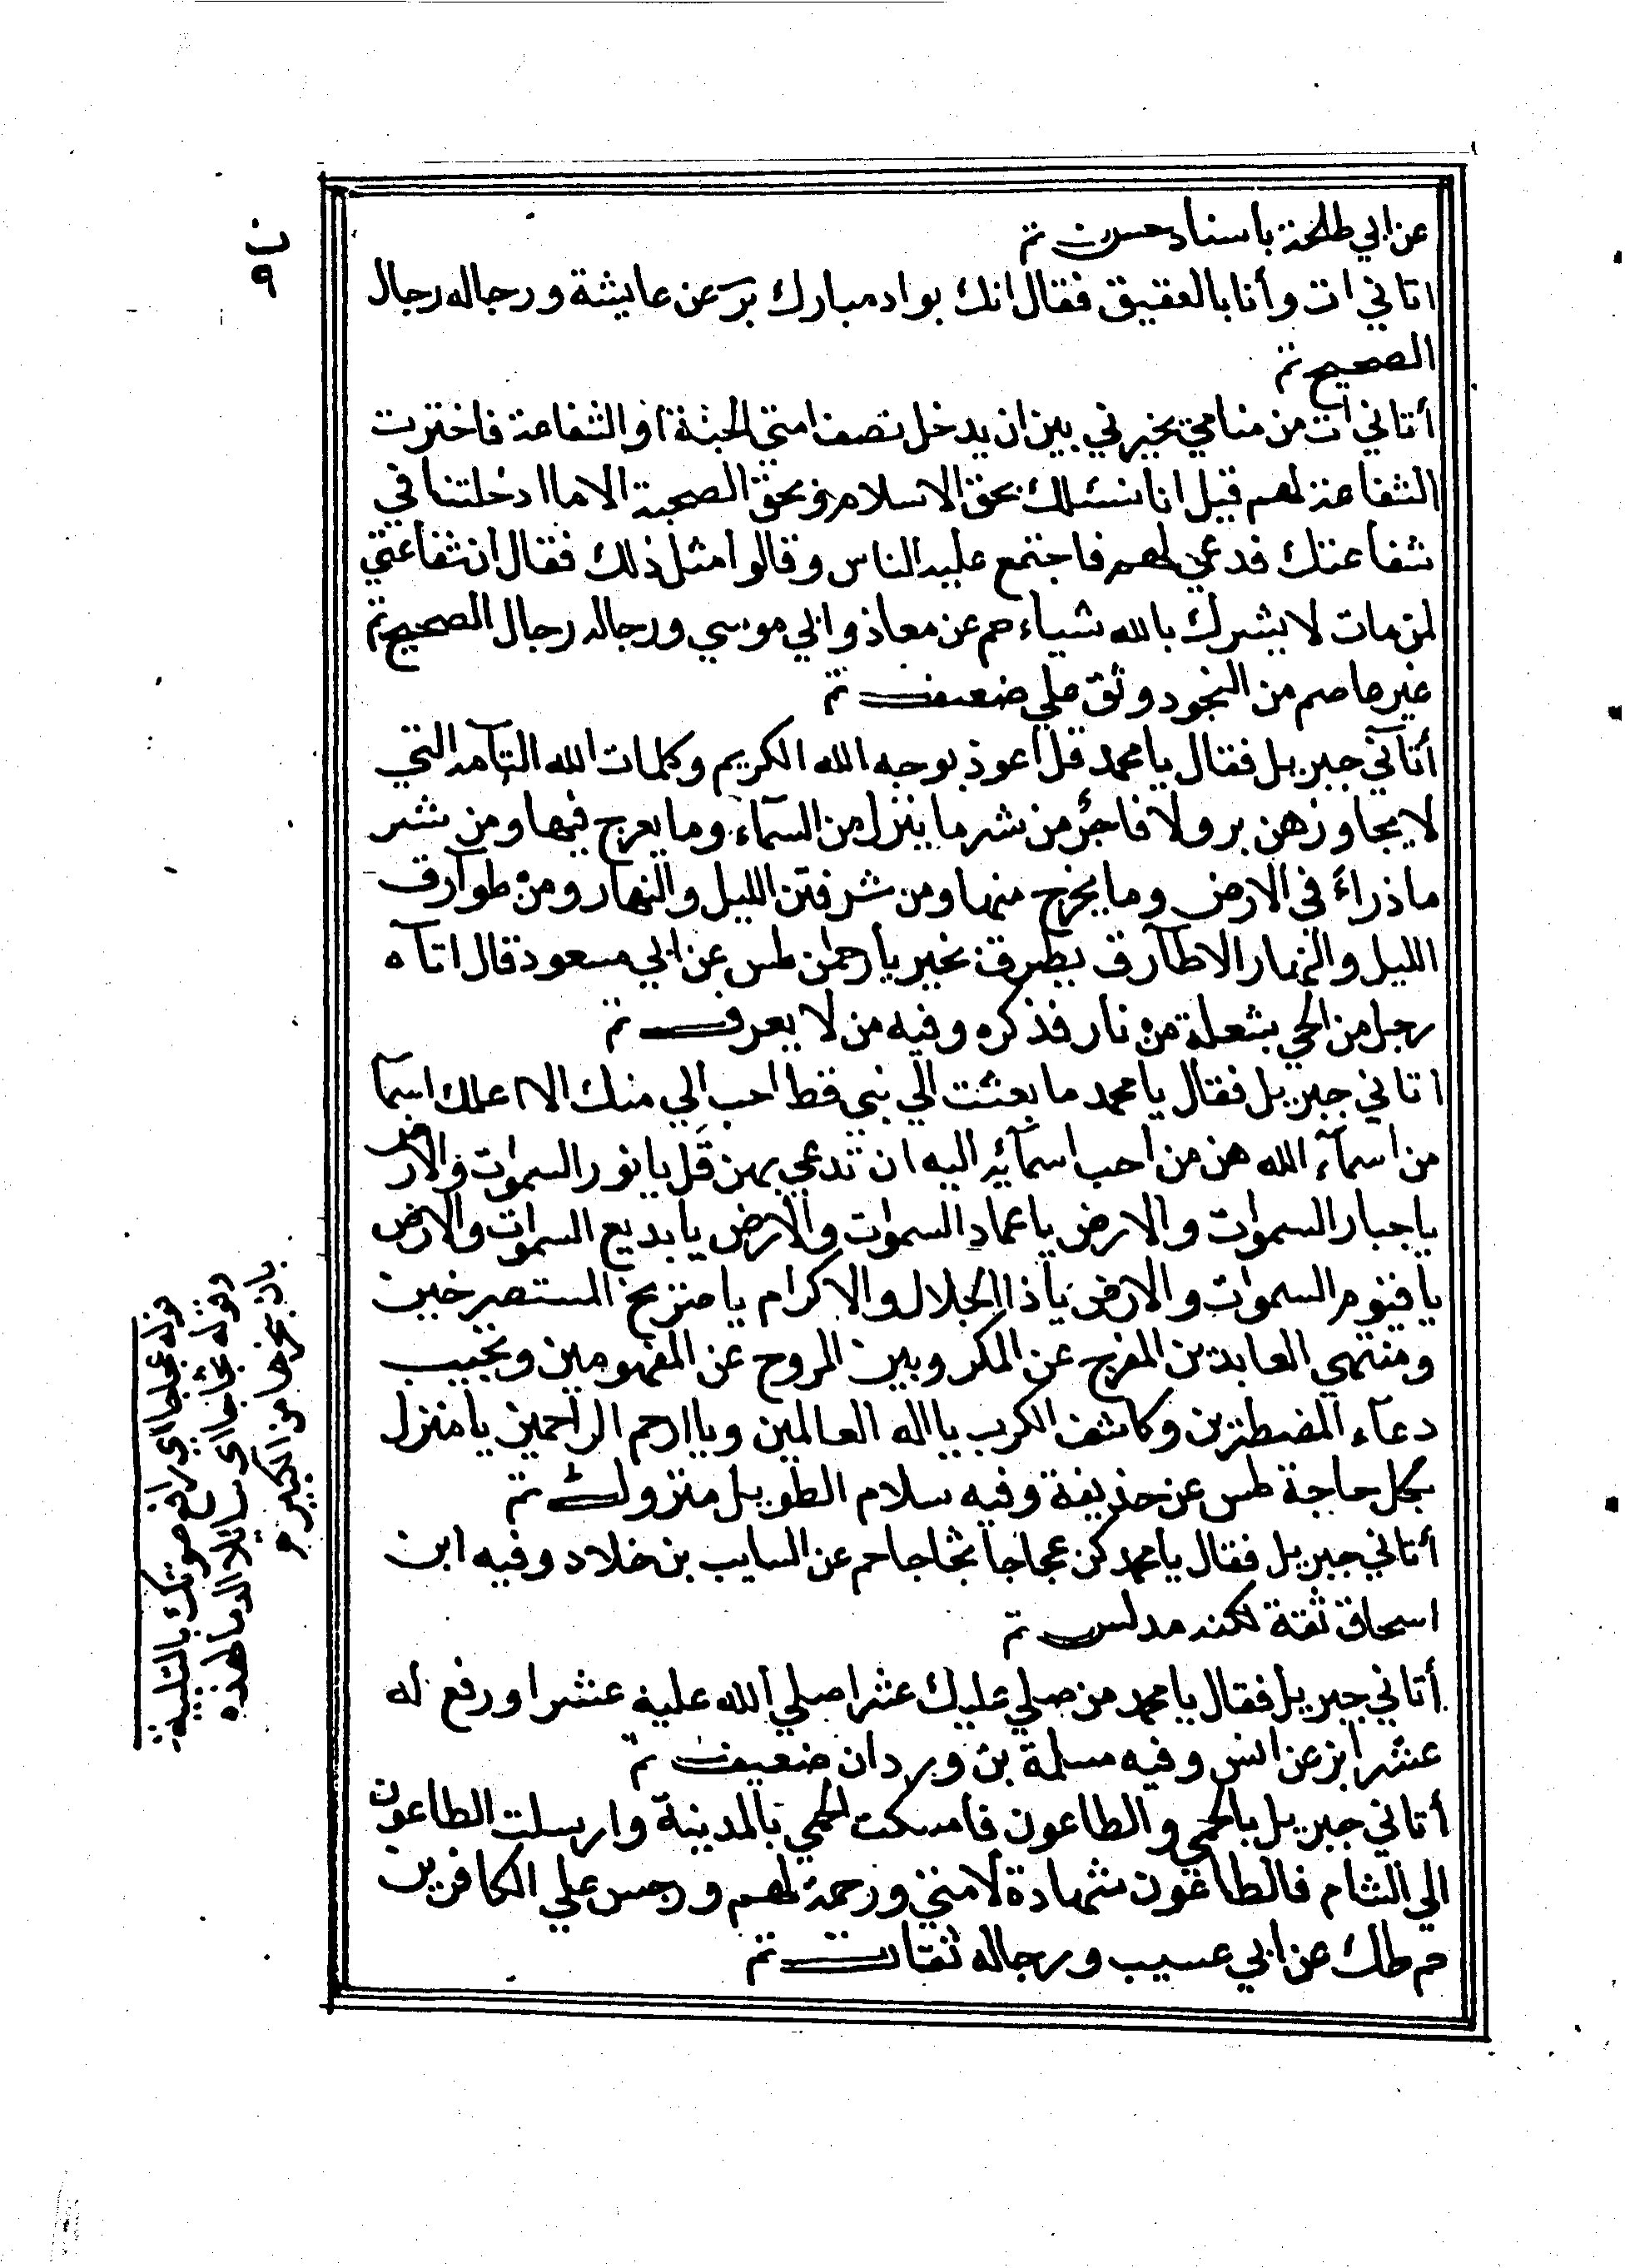 عن ابي طلحة باسناد حسن تم
اتاني ات وأنا بالعقيق فقال انك بواد مبارك بز عن عايشة ورجاله رجال
الصحيح تم
أتاني أت من منامي يخيرني بين ان يدخل نصف امتي الجنة أو الشفاعة فاخترت
الشفاعة لهم قيل انا نسئلك بحق الاسلام وبحق الصحبة الا ما ادخلتنا في
شفاعتك فدعي لهم فاجتمع عليه الناس وقالوا مثل ذلك فقال ان شفاعتي
لمن مات لا يشرك بالله شياء حم عن معاذ وابي موسي ورجاله رجال الصحيح تم
غير عاصم من النجود وثق علي ضعف تم
أتآني جبريل فقال يا محمد قل اعوذ بوجه الله الكريم وكلمات الله التآمه التي
لا يجاوزهن بر ولا فاجر من شر ما ينزل من السمآء وما يعرج فيها ومن شر
ما ذراء في الارض وما يخرج منها ومن شر فتن الليل والنهار ومن طوآرق
الليل والنهار الا طآرق يطرق بخير يا رحمن طس عن ابي مسعود قال اتآه
رجل من الحي بشعلة من نار فذكره وفيه من لا يعرف تم
اتاني جبريل فقال يا محمد ما بعثت الي نبي قط احب الي منك الا اعلمك اسمآ
من اسمآء الله هن من احب اسمآئه اليه ان تدعي بهن قل يا نور السموات والارض
يا جبار السموات والارض يا عماد السموات والارض يا بديع السموات والارض
يا قيوم السموات والارض يا ذا الجلال والاكرام يا صريخ المستصرخين
ومنتهي العابدين المفرج عن المكروبين المروح عن المغمومين ومجيب
دعآء المضطرين وكاشف الكرب يا اله العالمين ويا ارحم الراحمين يا منزل
بكل حاجة طس عن حذيفة وفيه سلام الطويل متروك تم
أتاني جبريل فقال يا محمد كن عجاجا ثجاجا حم عن السايب بن خلاد وفيه ابن
اسحاق ثقة لكنه مدلس تم
أتاني جبريل فقال يا محمد من صلي عليك عشرا صلي الله عليه عشرا ورفع له
عشرا بز عن انس وفيه مسلمة بن وردان ضعيف تم
أتاني جبريل بالحمي والطاعون فامسكت الحمي بالمدينة وارسلت الطاعون
الي الشام فالطاعون شهادة لامتي ورحمة لهم ورجس علي الكافرين
حم طك عن ابي عسيب ورجاله ثقات تم
٩
قوله عجاجا اي رافع صوتك بالتلبية
قوله ثجاجا اي سايلا الدما لهذه